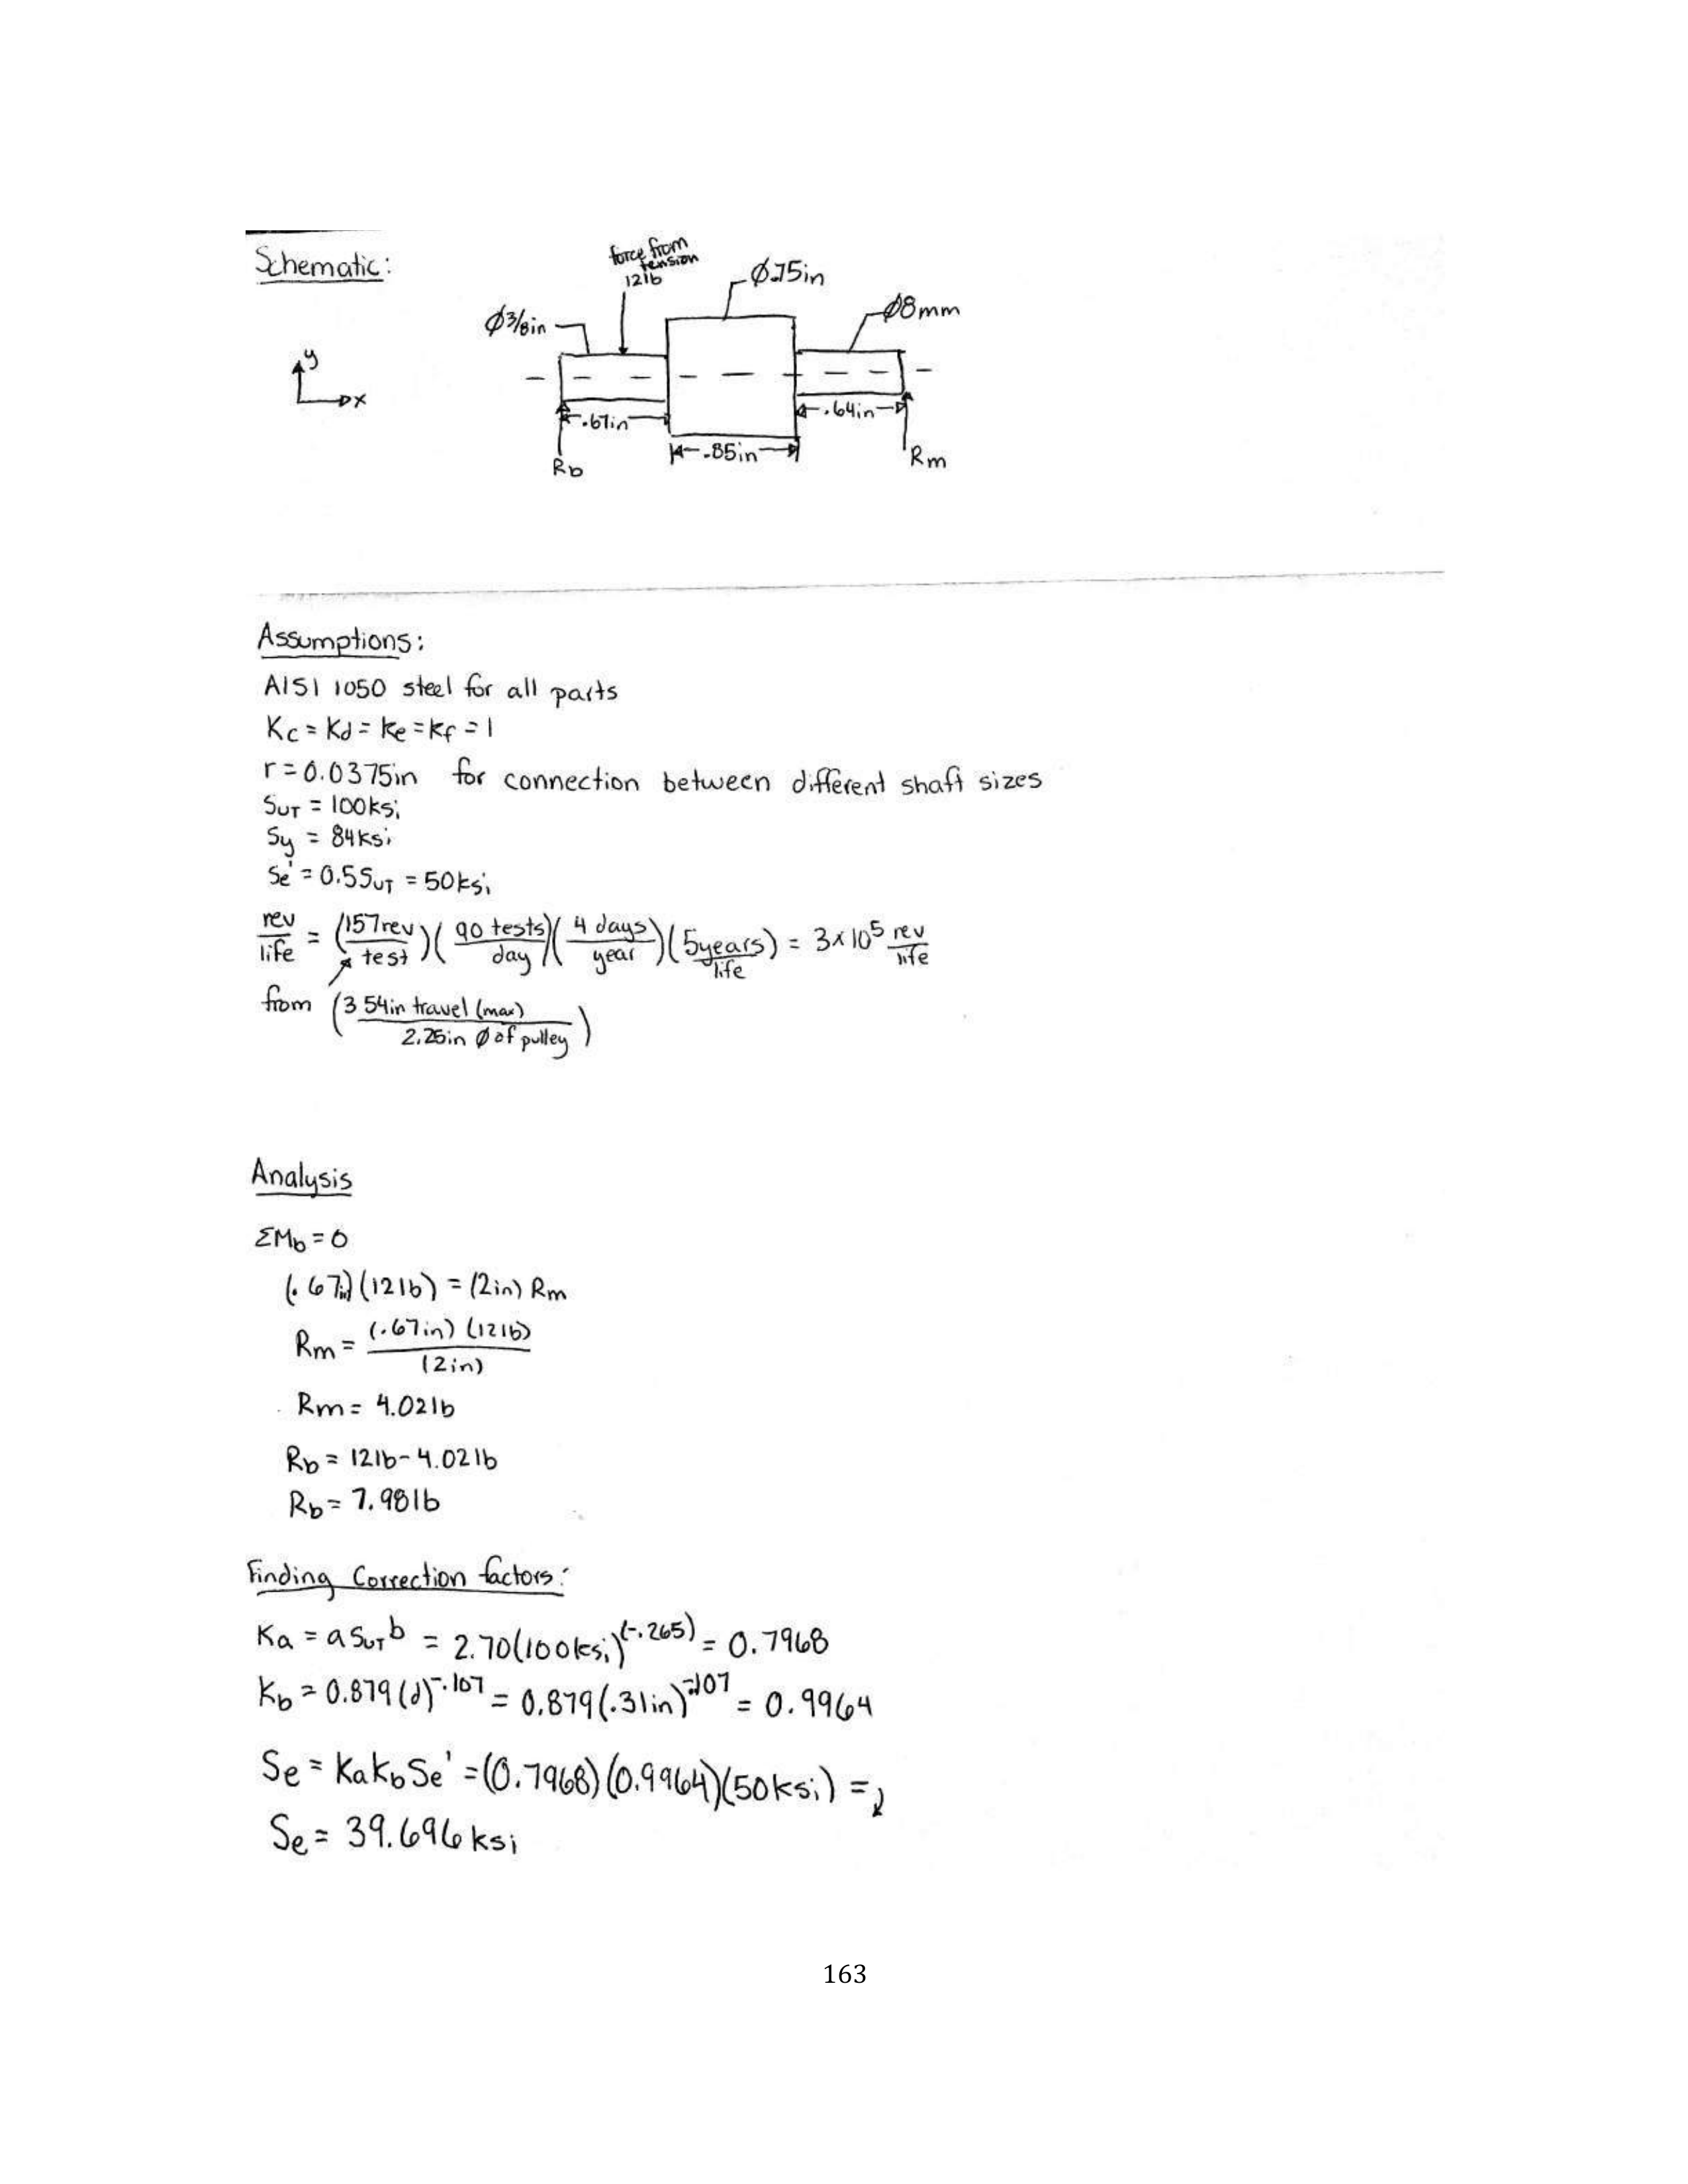 Schematic:
force from
tension
12lb
Ø.75in
Ø3/8in
Ø8mm
y
x
.67in
.64in
.85in
Rb
Rm
Assumptions:
AISI 1050 steel for all parts
Kc = Kd = Ke = Kf = 1
r = 0.0375in for connection between different shaft sizes
SUT = 100ksi
Sy = 84ksi
Se' = 0.5SUT = 50ksi
rev/life = (157rev/test)(90 tests/day)(4 days/year)(5years/life) = 3x10^5 rev/life
from (354in travel (max)/2.25in Ø of pulley)
Analysis
ΣMb = 0
(.67in)(12lb) = (2in) Rm
Rm = (.67in) (12lb)/(2in)
Rm = 4.02lb
Rb = 12lb - 4.02lb
Rb = 7.98lb
Finding Correction factors:
Ka = a SUT^b = 2.70(100ksi)^(-.265) = 0.7968
Kb = 0.879(d)^-.107 = 0.879(.31in)^-.107 = 0.9964
Se = KaKbSe' = (0.7968)(0.9964)(50ksi) =
Se = 39.696ksi
163